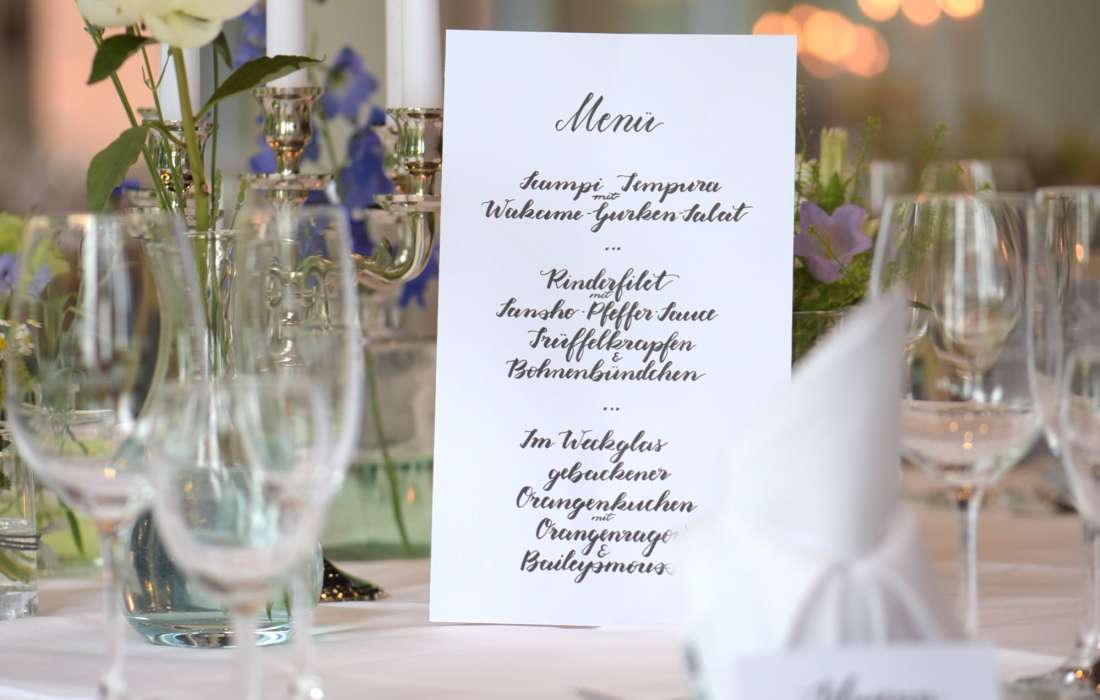 Menü
Scampi Tempura
mit
Wakame-Gurken-Salat
...
Rinderfilet
mit
Sansho-Pfeffer-Sauce
Trüffelkrapfen
&
Bohnenbündchen
...
Im Weckglas
gebackener
Orangenkuchen
mit
Orangenrago
&
Baileysmous